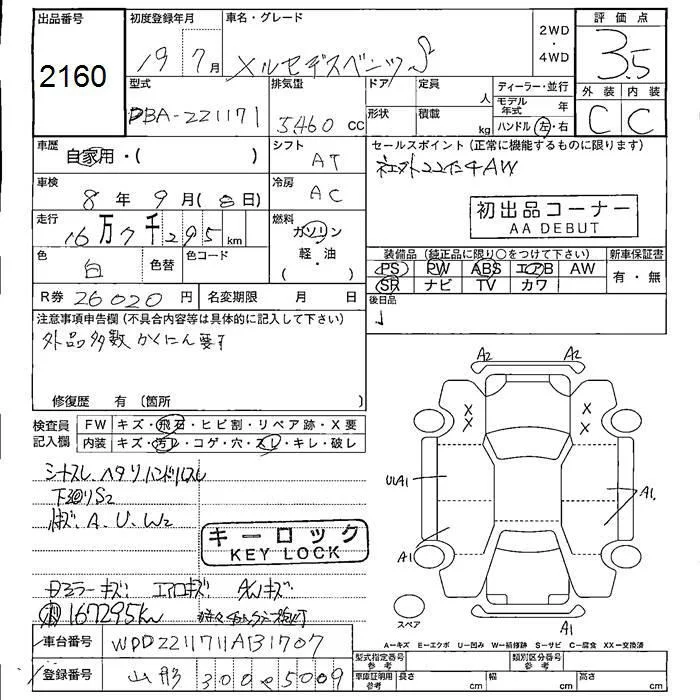 出品番号
2160
初度登録年月
19 7月
車名・グレード
メルセデスベンツ S
2WD
・
4WD
評価点
3.5
外装 内装
C C
型式
DBA-221171
排気量
5460 CC
ドア
形状
定員
人
積載
kg
ディーラー・並行
モデル
年式 年
ハンドル 左・右
車歴
自家用・( )
シフト
AT
セールスポイント (正常に機能するものに限ります)
社外22インチAW
車検
8年 9月(8日)
冷房
AC
初出品コーナー
AA DEBUT
走行
16万7千295km
燃料
ガソリン
軽・油
( ・ )
色
白
色替
色コード
装備品 (純正品に限り○をつけて下さい)
新車保証書
PS PW ABS エアB AW
SR ナビ TV カワ
有・無
R券 26020円
名変期限 月 日
後日品
注意事項申告欄 (不具合内容等は具体的に記入して下さい)
外品多数 かくにん要す
修復歴 有 (箇所 )
検査員
記入欄
FW キズ・飛石・ヒビ割・リペア跡・X要
内装 キズ・汚レ・コゲ・穴・スレ・キレ・破レ
シートスレ、ヘタリ ハンドルスレ
下廻りS2
キズ A、U、W2
キーロック
KEY LOCK
ドアミラーキズ エアロキズ AWキズ
167295km
A2 A2
X X
X X
UA1
A1
A1
A1
スペア
A=キズ E=エクボ U=凹み W=補修跡 S=サビ C=腐食 XX=交換済
車台番号
WDD2211711A131707
登録番号
山形 300 そ 5009
型式指定番号
参考
類別区分番号
参考
車庫証明用
参考
長さ cm
幅 cm
高さ cm